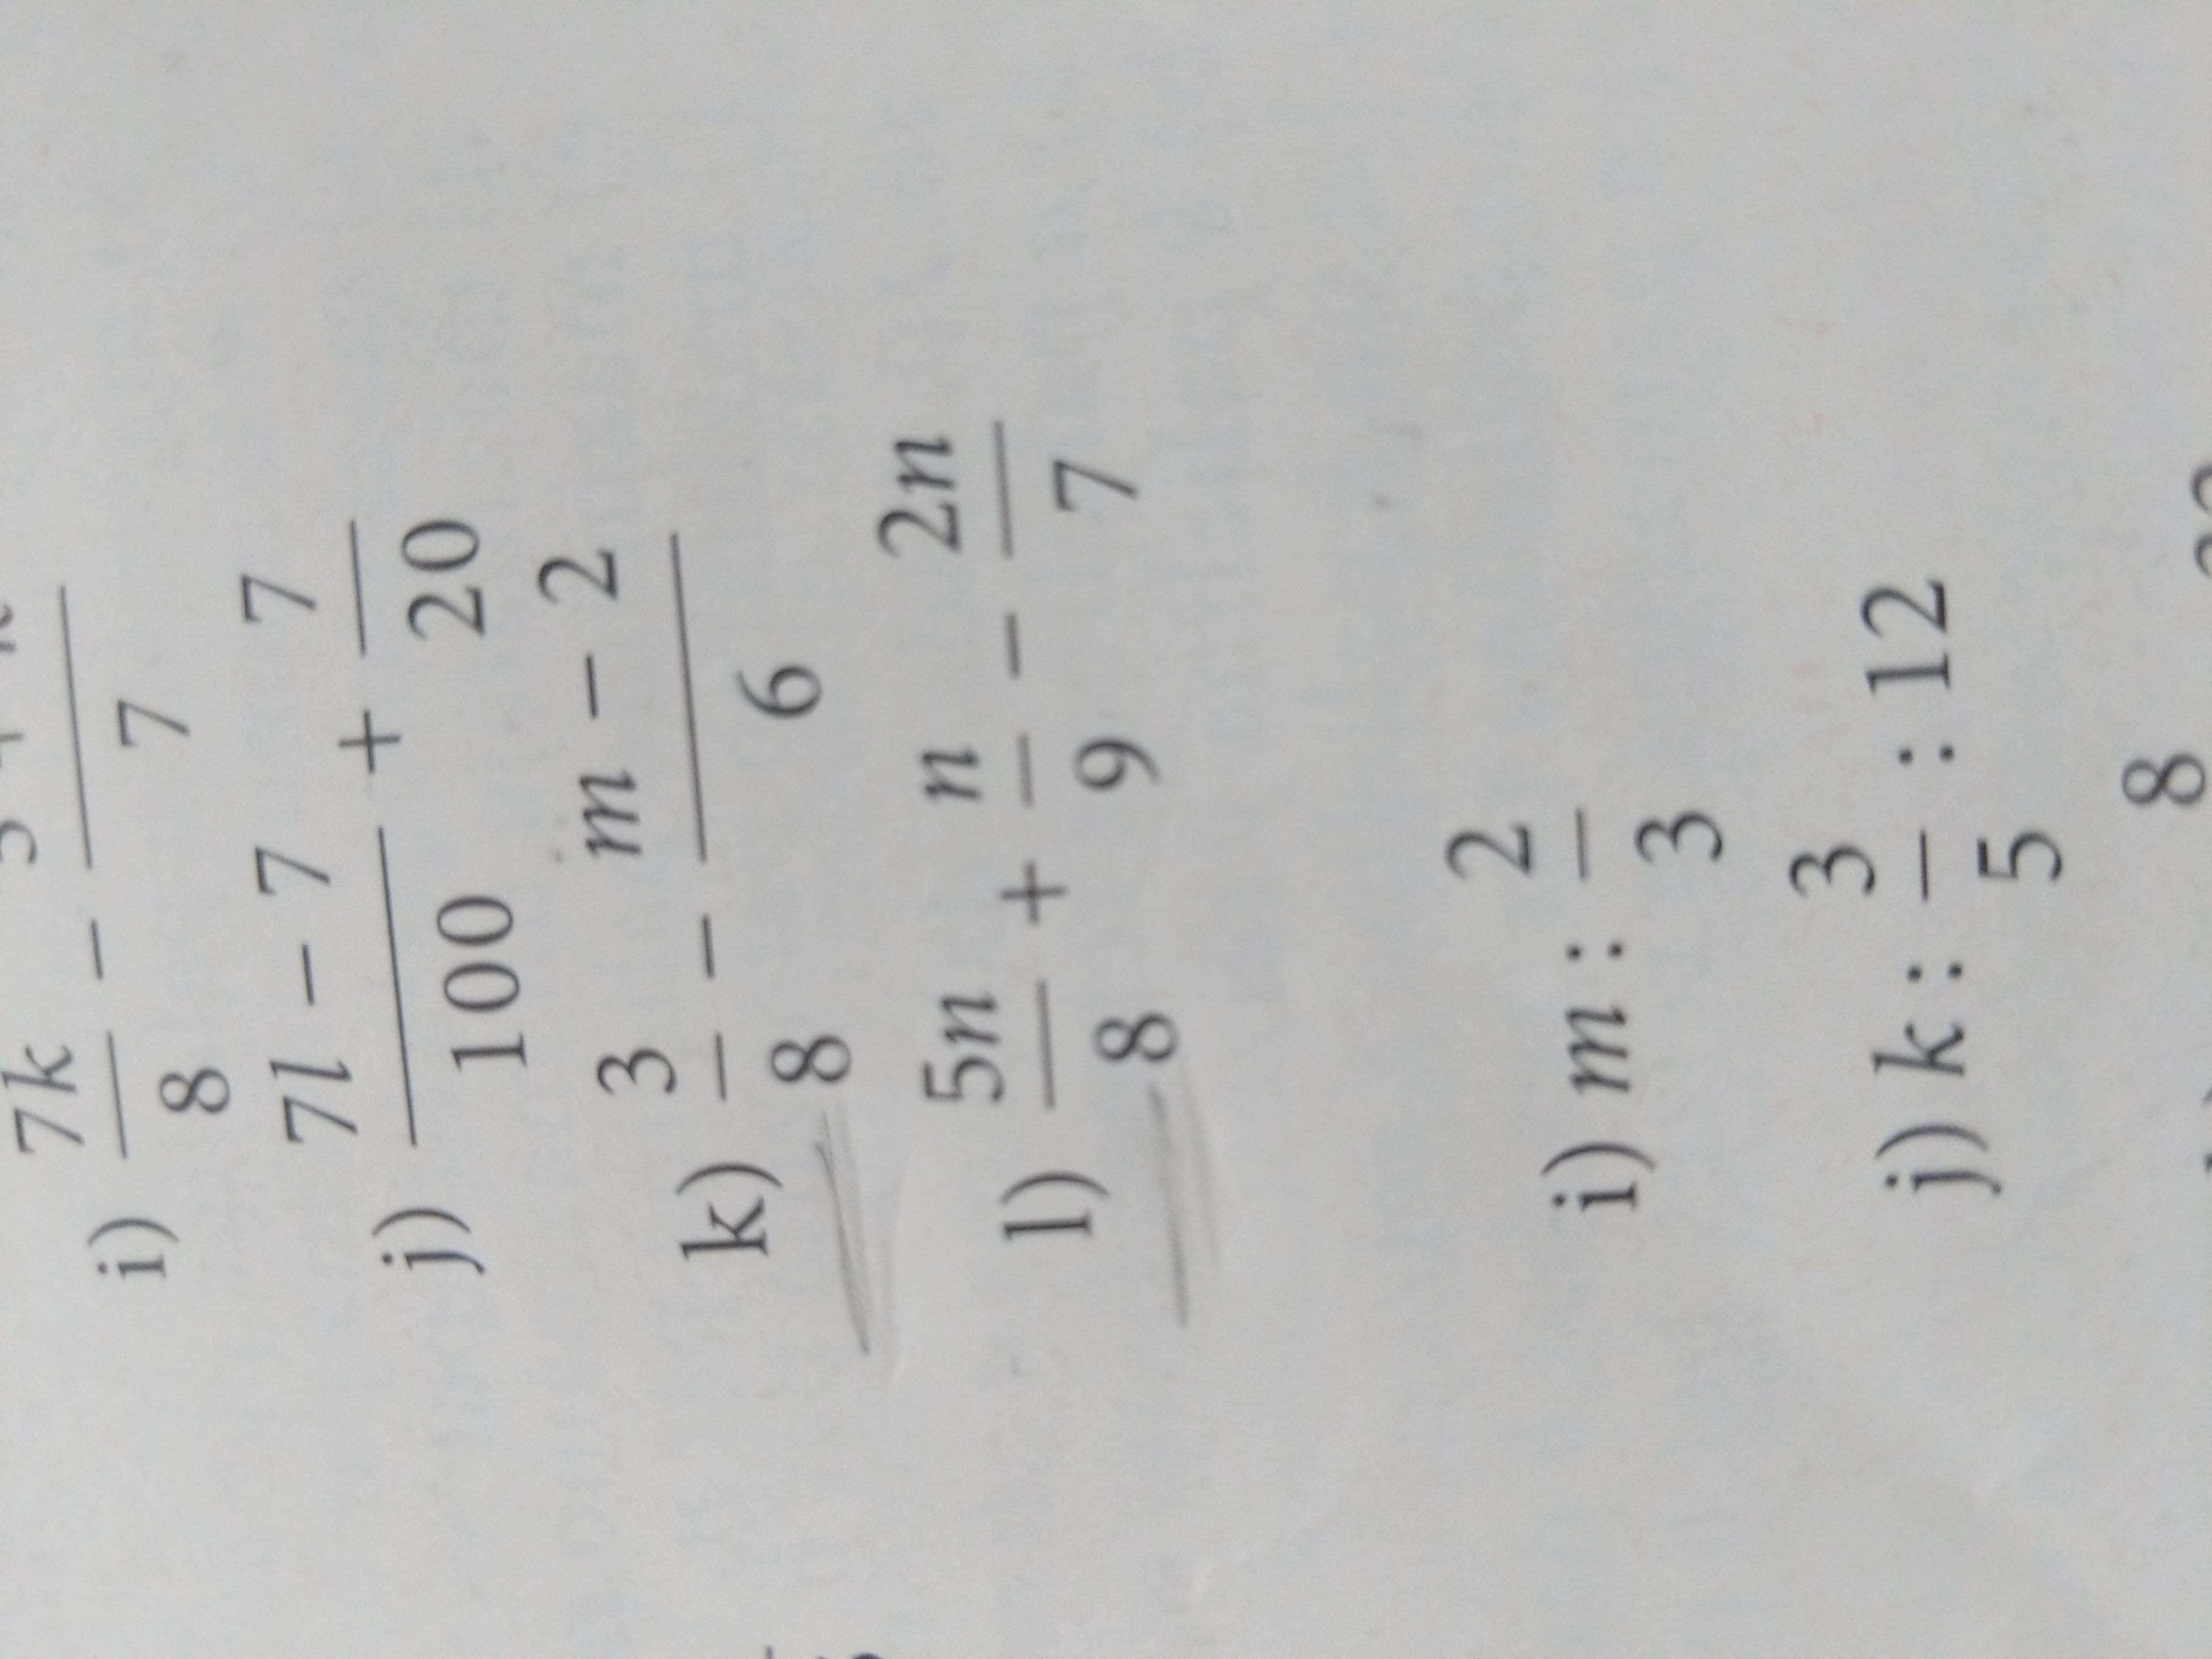 i) 7k/8 - /7
j) (7l - 7)/100 + 7/20
k) 3/8 - (m - 2)/6
l) 5n/8 + n/9 - 2n/7
i) m : 2/3
j) k : 3/5 : 12
8